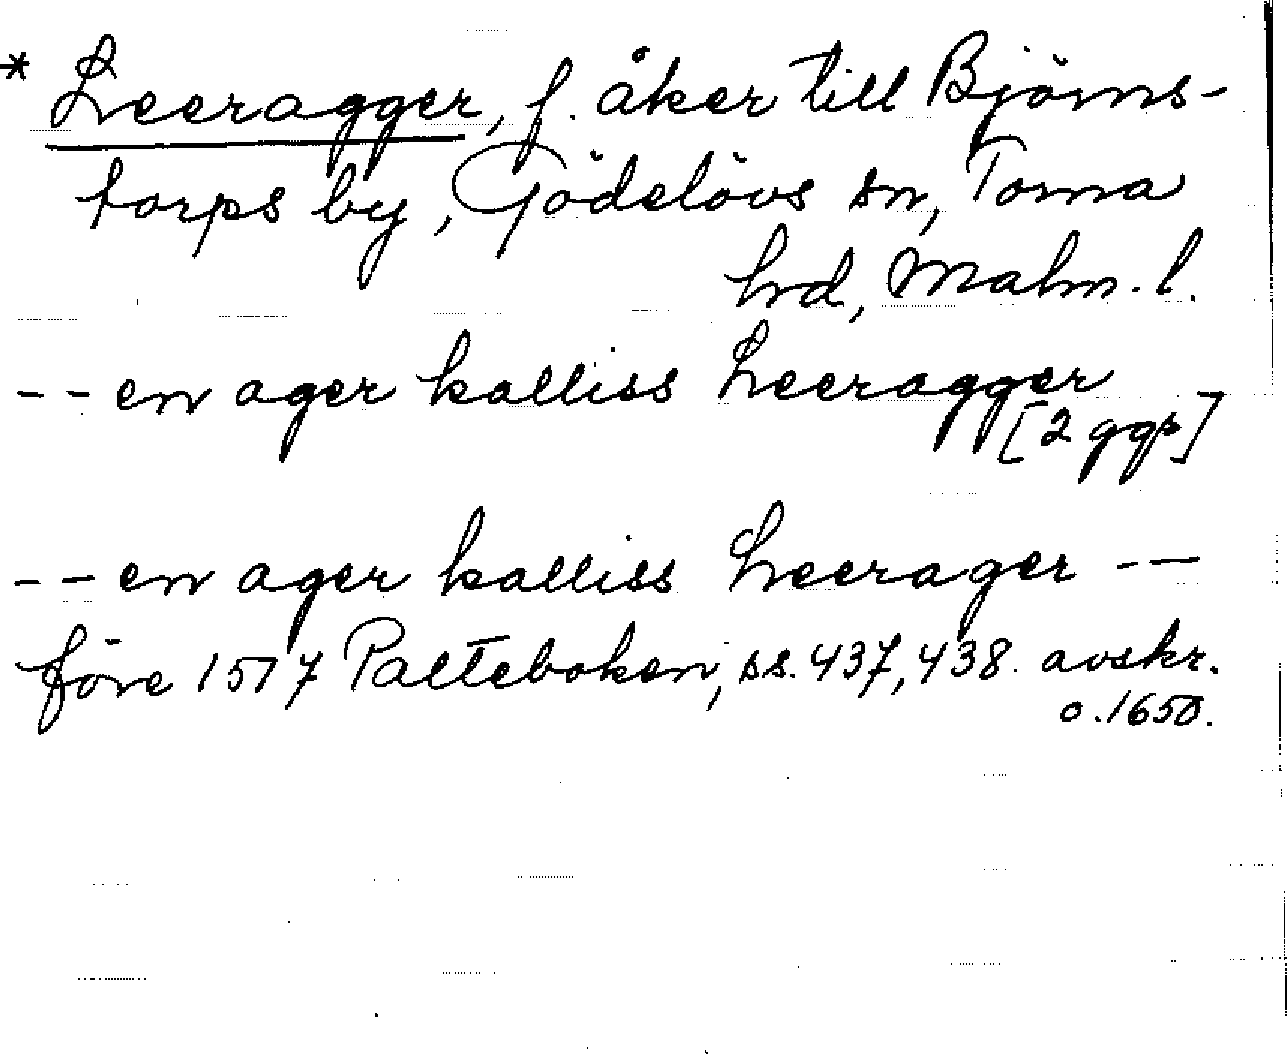 * Leeragger, f. åker till Björns-
torps by, Gödelövs sn, Torna
hrd, Malm. l.
-- en ager kalliss Leeragger
[2 ggr]
-- en ager kalliss Leerager --
före 1517 Palteboken, ss. 437, 438. avskr.
o. 1650.